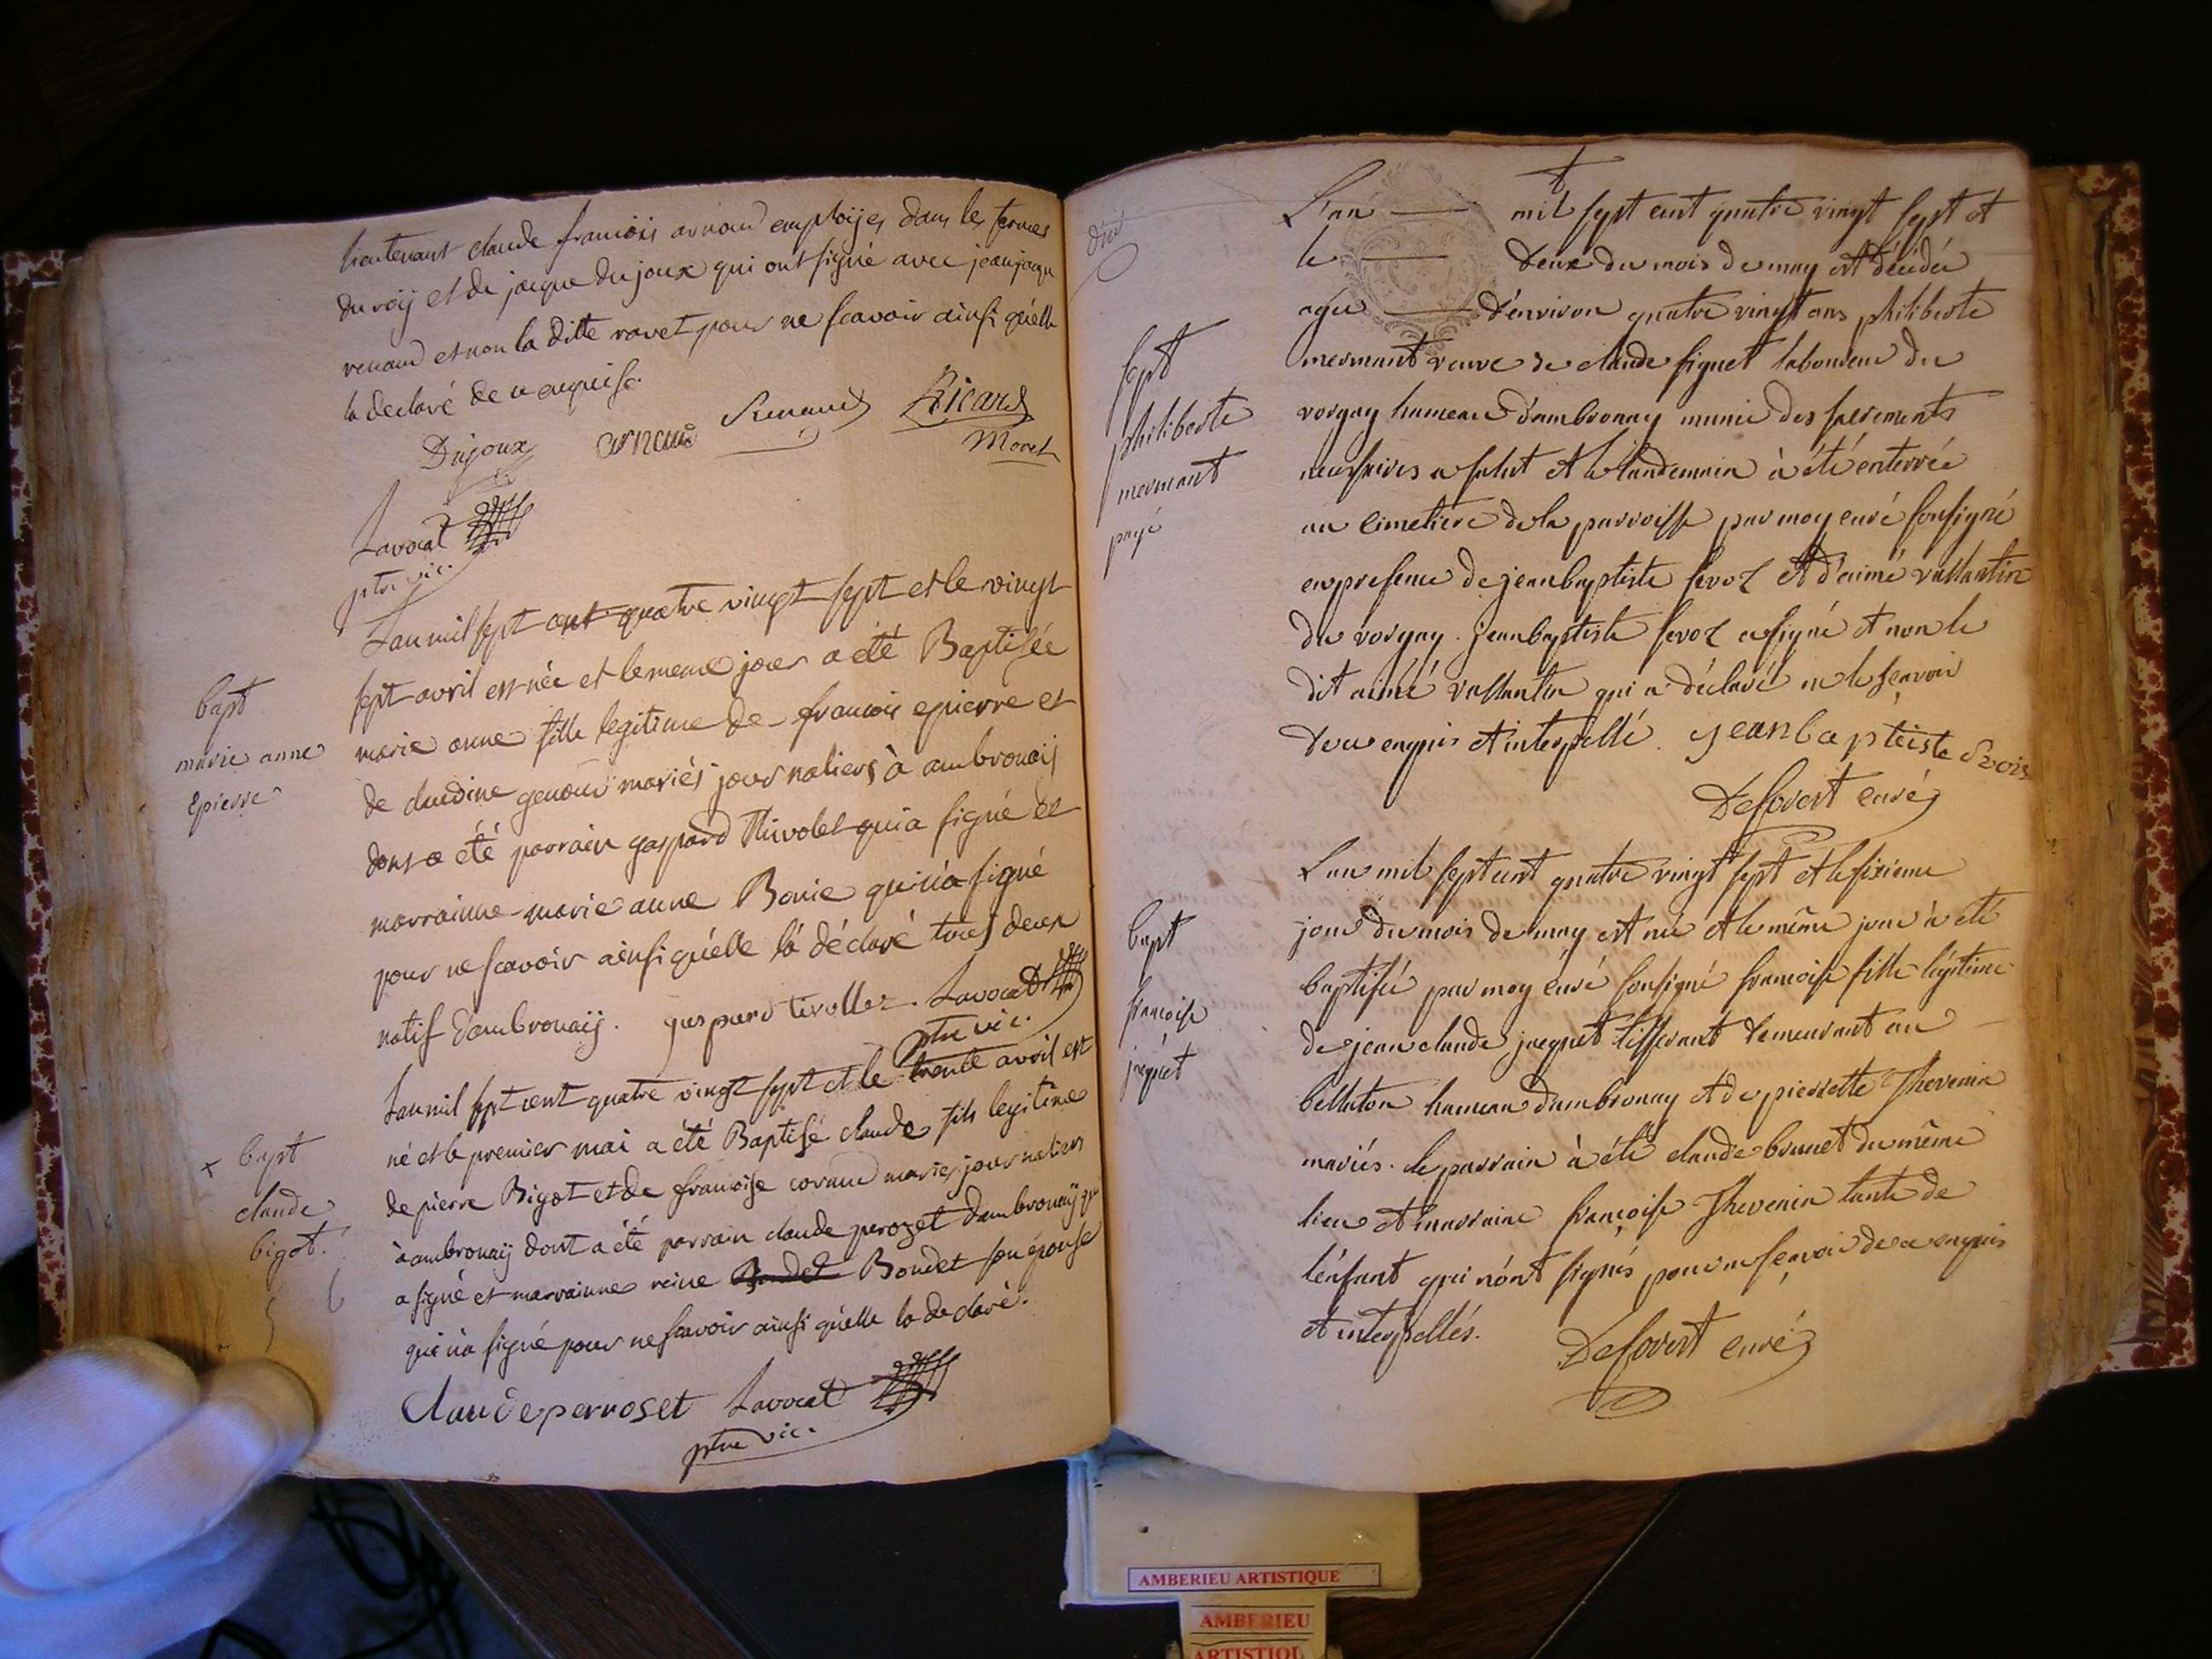 lieutenant claude francois arnaud employés dans les fermes
du roij et de jacque dujoux qui ont signé avec jean jacque
renaud et non la ditte ravet pour ne scavoir ainsi qu'elle
la declaré de ce enquise.
Dujoux arnaud Renaud Ricard
Morel
Lavocat
ptre vic.
L'an mil sept cent quatre vingt sept et le vingt
bapt
marie anne
epierre
sept avril est née et le meme jour a été Baptisée
marie anne fille legitime de francois epierre et
de claudine genoud mariés journaliers à ambronaij
dont a été parrain gaspard Thivolet qui a signé et
marrainne marie anne Bonie qui n'a signé
pour ne scavoir ainsi qu'elle l'a déclaré tous deux
natif d'ambronaij. gaspard tivollez. Lavocat
ptre vic.
L'an mil sept cent quatre vingt sept et le trente avril est
x bapt
claude
bigot.
né et le premier mai a été Baptisé claude fils legitime
de pierre Bigot et de francoise cornud mariés journaliers
à ambronaij dont a été parrain claude perozet d'ambronaij qui
a signé et marrainne reine Bondet Bondet son épouse
qui n'a signé pour ne scavoir ainsi qu'elle la declaré.
Claude perroset Lavocat
ptre vic.
L'an mil sept cent quatre vingt sept et
le deux du mois de may est décédée
agée d'environ quatre vingt ans philiberte
sept
philiberte
mermant
payé
mermant veuve de claude figuet laboureur du
vorgay hameau d'ambronay munie des sacrements
necessaires a salut et le landemain à été enterrée
au cimetiere de la parroisse par moy curé sousigné
en presence de jean baptiste sevoz et d'aimé vallantin
du vorgay. jean baptiste sevoz a signé et non le
dit aimé vallantin qui a déclaré ne le scavoir
de ce enquis et interpellé. jean baptiste Sevois
Desovert curé
L'an mil sept cent quatre vingt sept et le sixieme
bapt
francoise
jaquet
jour du mois de may est née et le même jour à été
baptisée par moy curé sousigné francoise fille légitime
de jean claude jacquet tisserant demeurant au
belluton hameau d'ambronay et de pierrette Thevenin
mariés. le parrain à été claude brunet du même
lieu et marraine francoise Thevenin tante de
l'enfant qui n'ont signés pour ne scavoir de ce enquis
et interpellés.
Desovert curé
AMBERIEU ARTISTIQUE
AMBERIEU
ARTISTIQU